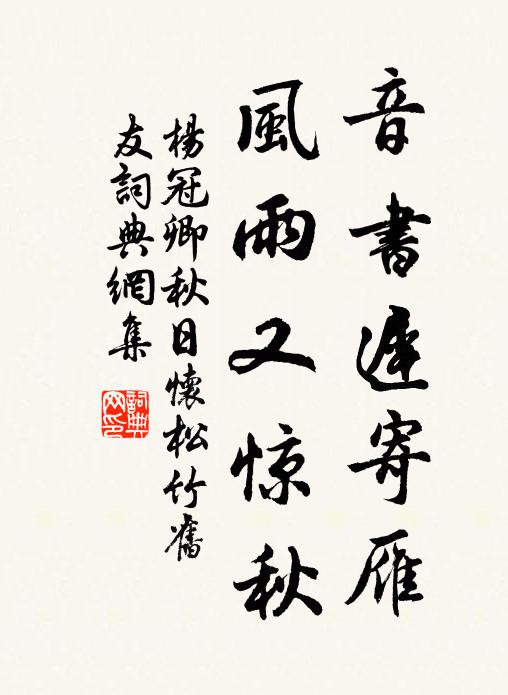 音書遲寄雁
風雨又惊秋
楊冠卿秋日懷松竹舊
友詞典網集
詞典
网印